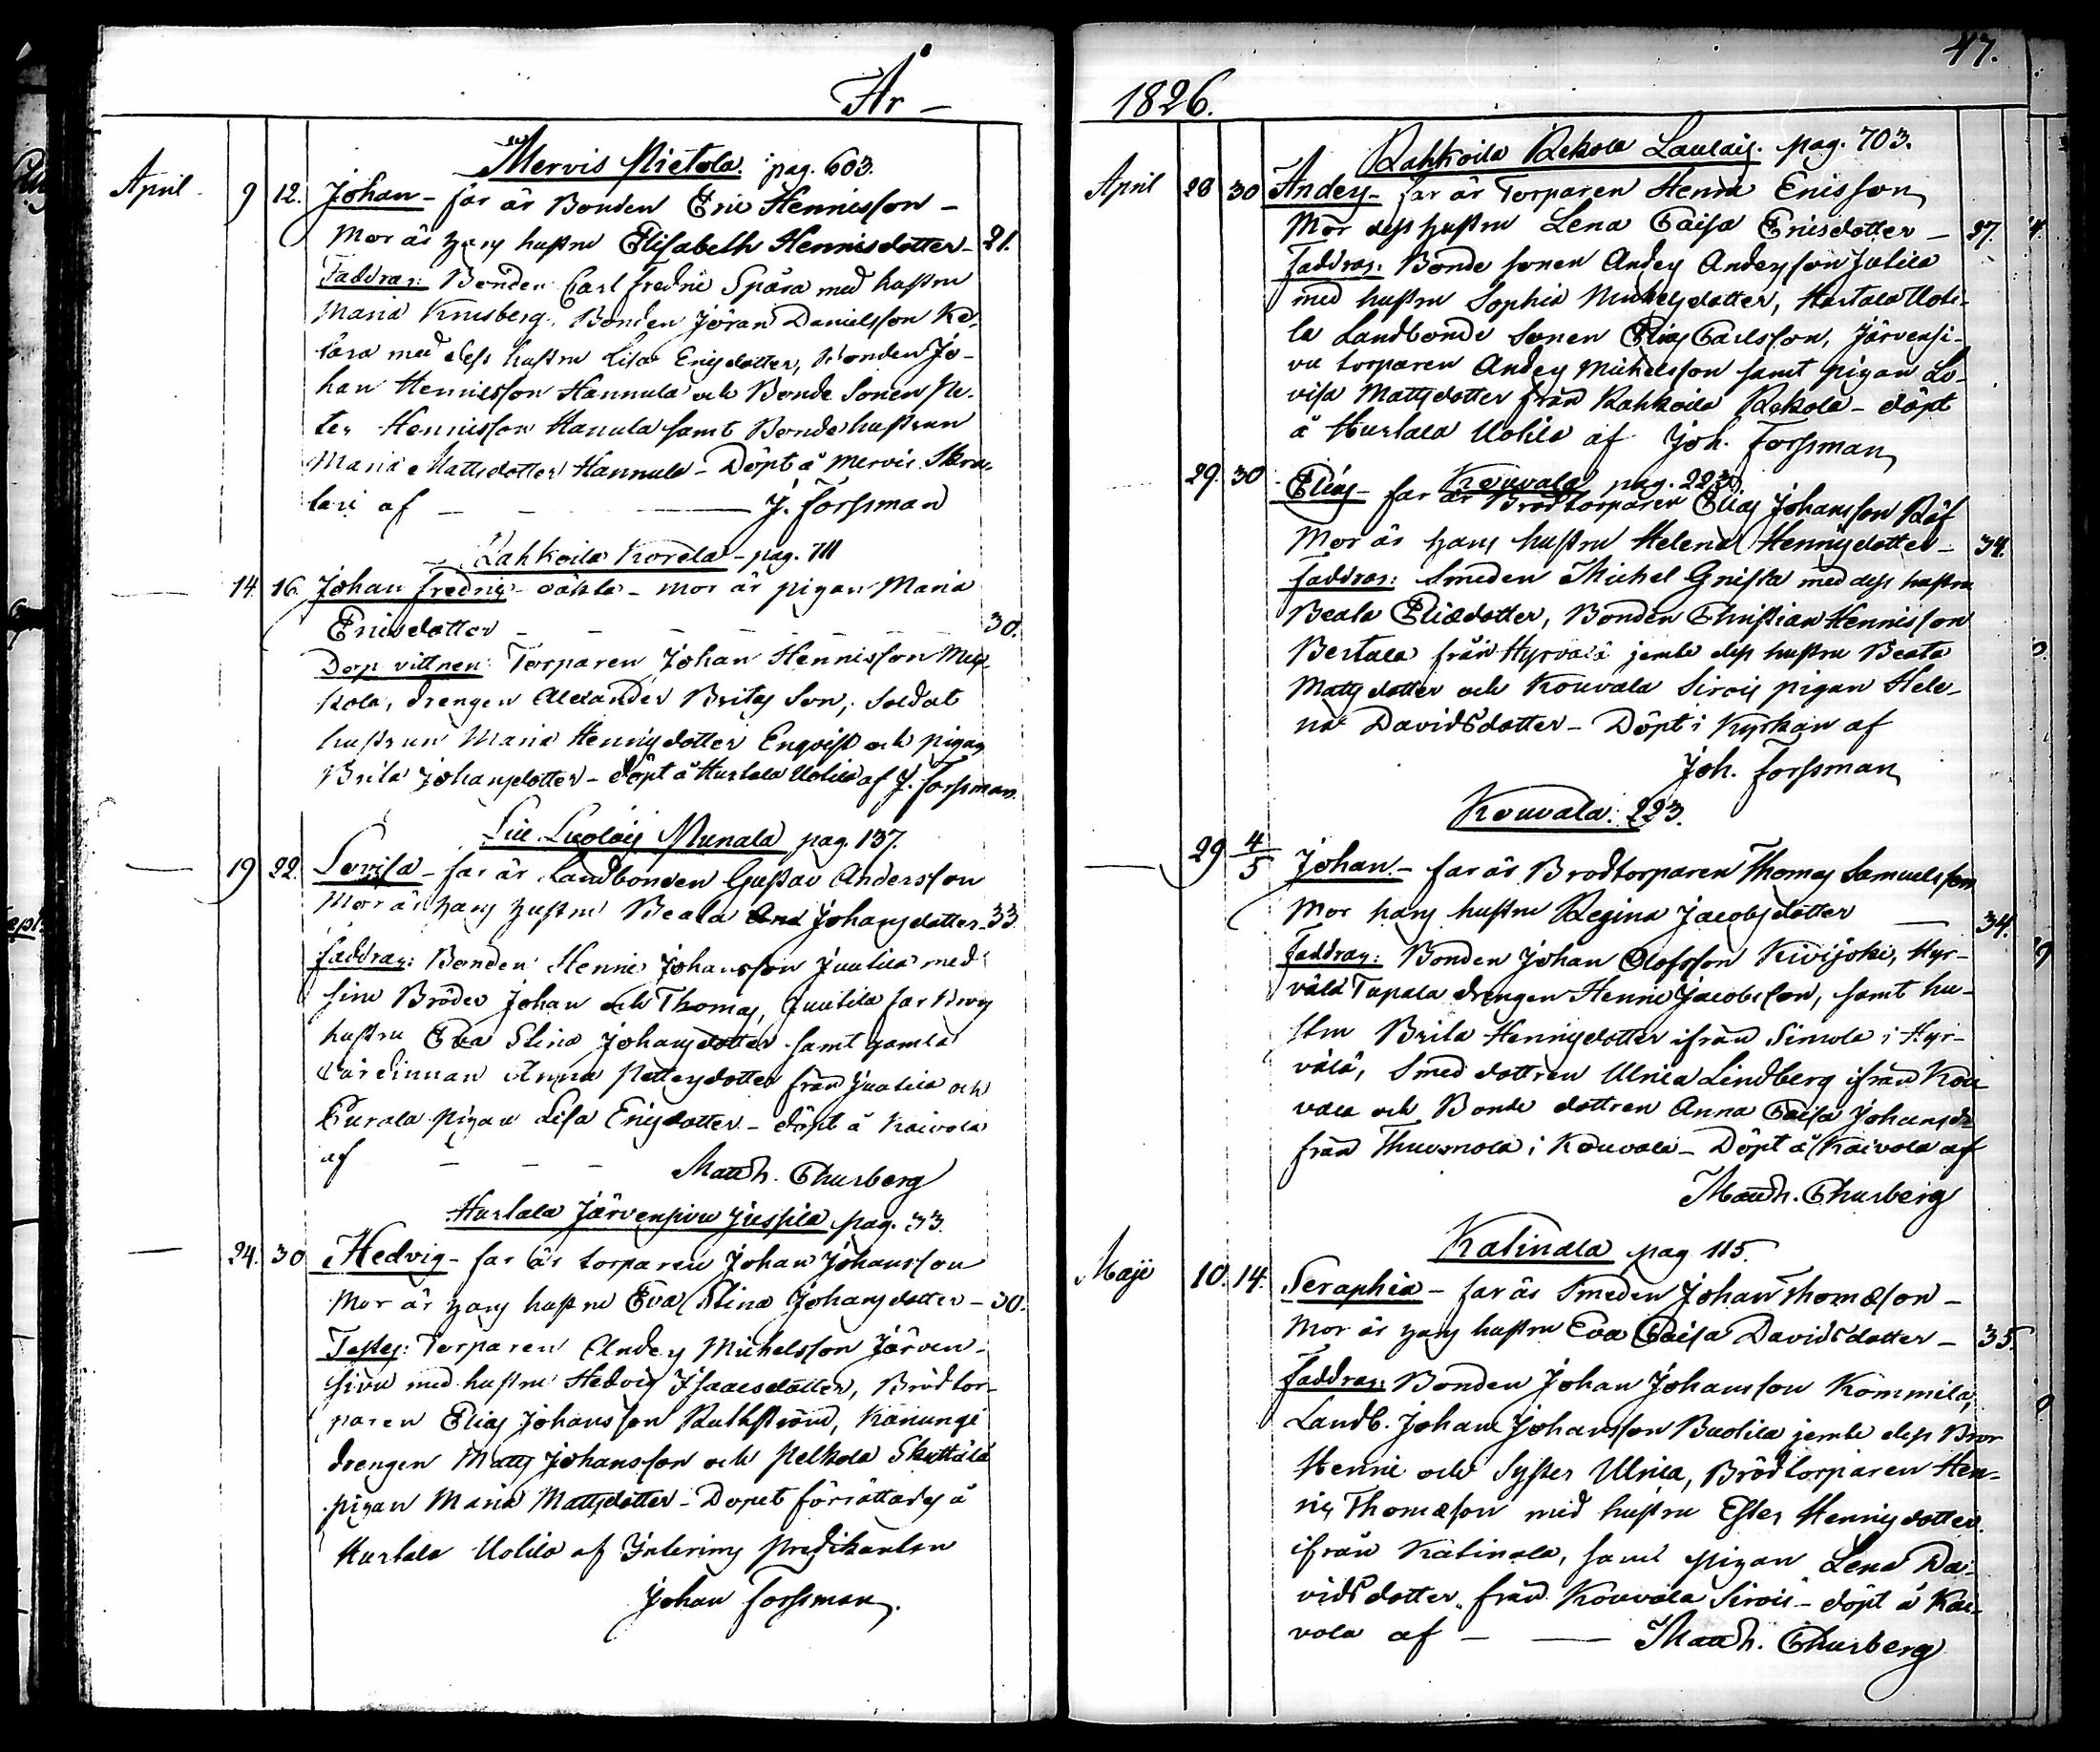 År –
Mervis Pietola. pag. 603.
April 9 12. Johan – far är Bonden Eric Henricsson –
Mor är hans hustru Elisabeth Henricsdotter – 21.
Faddrar: Bonden Carl Fredric Spåra med hustru
Maria Krusberg, Bonden Jöran Danielsson Ke-
med dess hustru Lisa Ericsdotter, Bonden Jo-
han Henricsson Hannula och Bonde Sonen Pe-
ter Henricsson Hanula samt Bondehustrun
Maria Mattsdotter Hannula – Döpt å Mervis
lari af – – J. Forssman
Rahkoila Korela – pag. 711
14. 16. Johan Fredric – oäkta – mor är pigan Maria
Ericsdotter – – – – – – 30.
Dop vittnen: Torparen Johan Henricsson
kola, drengen Alexander Britas Son, Soldat
hustrun Maria Henricsdotter Enqvist och pigan
Brita Johansdotter – döpt å Hurtala Uotila af J. Forssman.
Munala pag. 137.
19 22. Lovisa – far är Landbonden Gustav Andersson
Mor är hans hustru Beata Johansdotter – 33.
Faddrar: Bonden Henric Johansson Juutila med
sine Bröder Johan och Thomas, Juutila
hustru Eva Stina Johansdotter samt gamla
värdinnan Anna Pettersdotter från Juutila och
Eurala pigan Lisa Ericsdotter – döpt å Kaivola
af – – – Matth. Churberg
Hurtala Järvensivu Jussila pag. 33.
24. 30 Hedvig – far är torparen Johan Johansson
Mor är hans hustru Eva Stina Johansdotter – 30.
Testes: Torparen Anders Michelsson Järven-
sivu med hustru Hedvig Isaacsdotter, Brödtor-
paren Elias Johansson Ruthström, Kånungi
drengen Matts Johansson och Pelkola Skuttala
pigan Maria Mattsdotter – Dopet förrättades å
Hurtala Uotila af Interims Predikanten
Johan Forssman.
47.
1826.
Rahkoila Rekola Laulais. pag. 703.
April 28 30 Anders – far är Torparen Henric Ericsson
Mor dess hustru Lena Caisa Ericsdotter – 27.
Faddrar: Bonde sonen Anders Andersson Julica
med hustru Sophia Michelsdotter, Hurtala Uoti-
la Landbonde Sonen Elias Carlsson, Järvensi-
vu torparen Anders Michelsson samt pigan Lo-
visa Mattsdotter från Rahkoila Rekola – döpt
å Hurtala Uotila af Joh. Forssman
Kouvala pag. 223.
29. 30 Elias – far är Brödtorparen Elias Johansson Räf
Mor är hans hustru Helena Henricsdotter – 34.
Faddrar: Smeden Michel Gnista med dess hustru
Beata Eliædotter, Bonden Christian Henricsson
Bertala från Hyrvälä jemte dess hustru Beata
Mattsdotter och Kouvala Sirois pigan Hele-
na Davidsdotter – Döpt i Kyrkan af
Joh. Forssman
Kouvala. 223.
29 4/5 Johan – far är Brödtorparen Thomas Samuelsson
Mor hans hustru Regina Jacobsdotter – 34.
Faddrar: Bonden Johan Olofsson Kivijoki, Hyr-
välä Tapala drengen Henric Jacobsson, samt hu-
stru Brita Henricsdotter ifrån Simola i Hyr-
välä, Smed dottren Ulrica Lindberg ifrån Kou-
vala och Bonde dottren Anna Caisa Johansdr
från Thuomola i Kouvala – Döpt å Kaivola af
Matth. Churberg
Katinala pag 115.
Maji 10. 14. Seraphia – far är Smeden Johan Thomæson –
Mor är hans hustru Eva Caisa Davidsdotter – 35.
Faddrar: Bonden Johan Johansson Kommila,
Landb. Johan Johansson Buotila jemte dess Bror
Henric och Syster Ulrica, Brödtorparen Hen-
ric Thomæson med hustru Ester Henricsdotter
ifrån Katinala, samt pigan Lena Da-
vidsdotter från Kouvala Sirois – döpt å Kai-
vola af – – Matth. Churberg